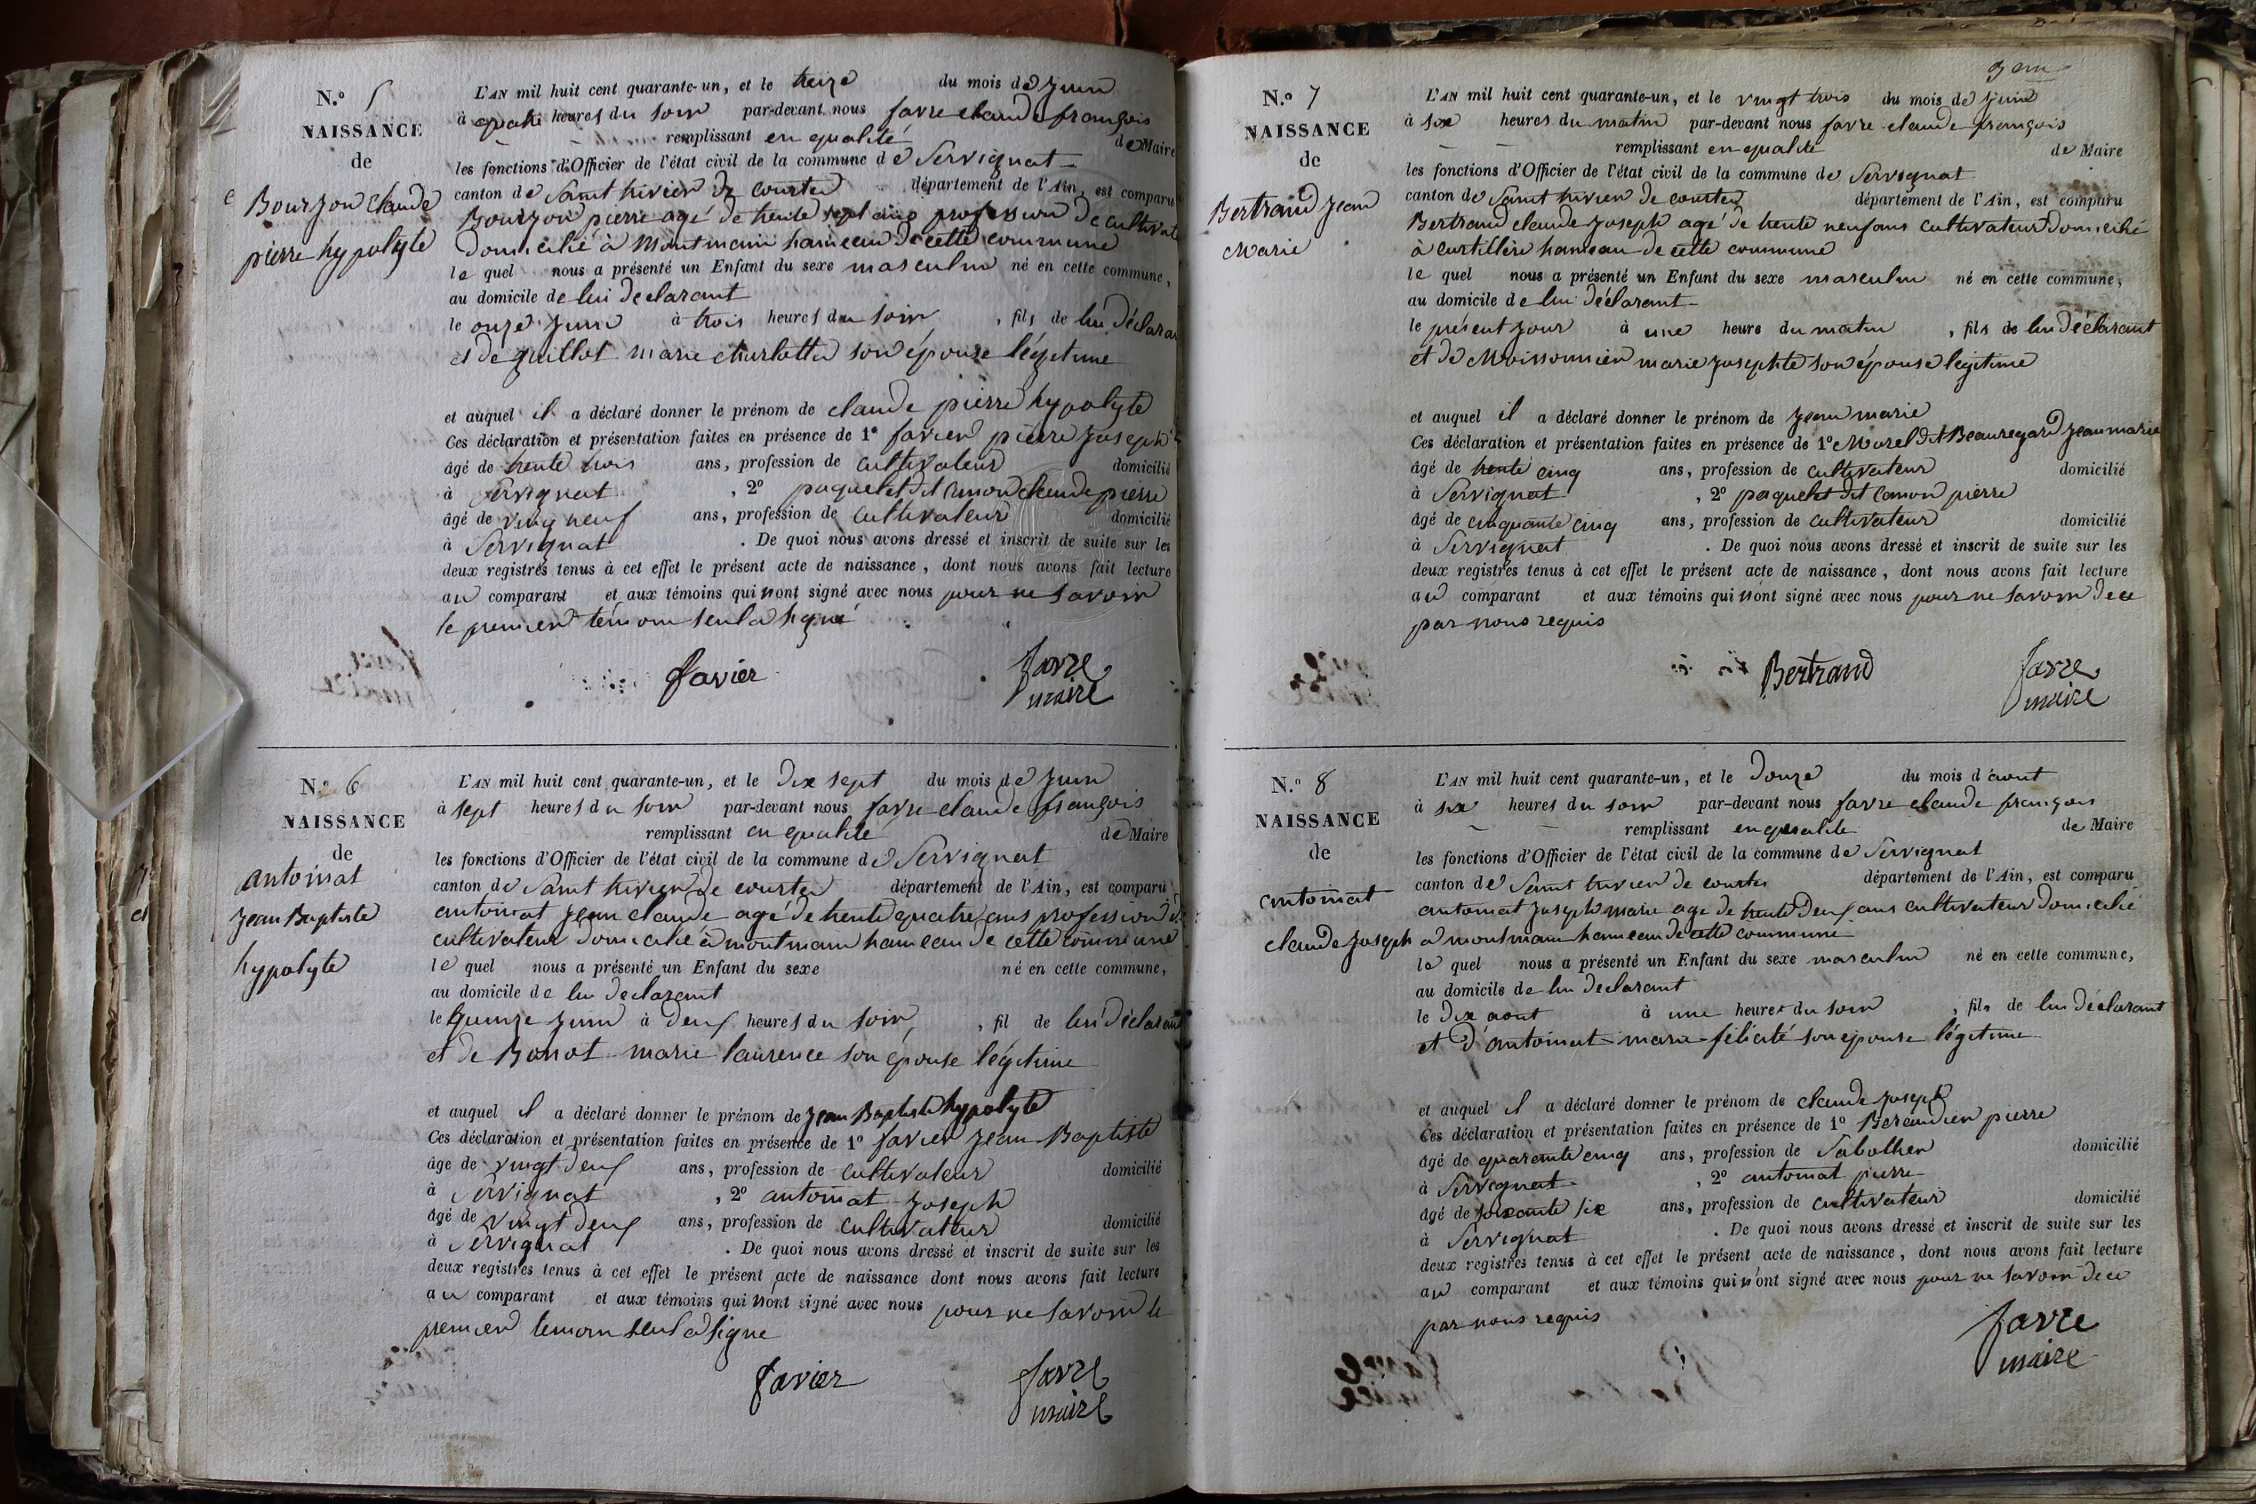 N.º 5
NAISSANCE
de
Bourjon claude
pierre hypolyte
L'AN mil huit cent quarante-un, et le treize du mois de Juin
à quatre heures du soir par-devant nous favre claude françois
remplissant en qualité de Maire
les fonctions d'Officier de l'état civil de la commune de Servignat
canton de Saint trivier de courtes département de l'Ain, est comparu
Bourjon pierre agé de trente sept ans profession de cultivat
domicilié à Montmain hameau de cette commune
le quel nous a présenté un Enfant du sexe masculin né en cette commune,
au domicile de lui déclarant
le onze Juin à trois heures du soir, fils de lui déclaran
et de guillot marie charlotte son épouse légitime
et auquel il a déclaré donner le prénom de claude pierre hypolyte
Ces déclaration et présentation faites en présence de 1º favier pierre Joseph
âgé de trente trois ans, profession de cultivateur domicilié
à Servignat, 2º paquelet dit camon claude pierre
âgé de vingt neuf ans, profession de cultivateur domicilié
à Servignat. De quoi nous avons dressé et inscrit de suite sur les
deux registres tenus à cet effet le présent acte de naissance, dont nous avons fait lecture
au comparant et aux témoins qui n'ont signé avec nous pour ne savoir
le premier témoin seul a signé
favier
favre
maire
N.º 6
NAISSANCE
de
antoinat
Jean Baptiste
hypolyte
L'AN mil huit cent quarante-un, et le dix sept du mois de Juin
à sept heures du soir par-devant nous favre claude françois
remplissant en qualité de Maire
les fonctions d'Officier de l'état civil de la commune de Servignat
canton de Saint trivier de courtes département de l'Ain, est comparu
antoinat Jean claude agé de trente quatre ans profession de
cultivateur domicilié à montmain hameau de cette commune
le quel nous a présenté un Enfant du sexe né en cette commune,
au domicile de lui déclarant
le quinze Juin à deux heures du soir, fil de lui déclarant
et de Bonot marie laurence son épouse légitime
et auquel il a déclaré donner le prénom de Jean Baptiste hypolyte
Ces déclaration et présentation faites en présence de 1º favier Jean Baptiste
âge de vingt deux ans, profession de cultivateur domicilié
à Servignat, 2º antoinat Joseph
âgé de vingt deux ans, profession de cultivateur domicilié
à Servignat. De quoi nous avons dressé et inscrit de suite sur les
deux registres tenus à cet effet le présent acte de naissance dont nous avons fait lecture
au comparant et aux témoins qui n'ont signé avec nous pour ne savoir le
premier temoin seul a signe
favier
favre
maire
N.º 7
NAISSANCE
de
Bertrand Jean
Marie
L'AN mil huit cent quarante-un, et le vingt trois du mois de Juin
à six heures du matin par-devant nous favre claude françois
remplissant en qualité de Maire
les fonctions d'Officier de l'état civil de la commune de Servignat
canton de Saint trivier de courtes département de l'Ain, est comparu
Bertrand claude Joseph agé de trente neuf ans cultivateur domicilié
à curtillère hameau de cette commune
le quel nous a présenté un Enfant du sexe masculin né en cette commune,
au domicile de lui déclarant
le présent Jour à une heure du matin, fils de lui déclarant
et de Moissonnier marie Josephte son épouse légitime
et auquel il a déclaré donner le prénom de Jean marie
Ces déclaration et présentation faites en présence de 1º Morel dit Beauregard Jean marie
âgé de trente cinq ans, profession de cultivateur domicilié
à Servignat, 2º paquelet dit camon pierre
âgé de cinquante cinq ans, profession de cultivateur domicilié
à Servignat. De quoi nous avons dressé et inscrit de suite sur les
deux registres tenus à cet effet le présent acte de naissance, dont nous avons fait lecture
au comparant et aux témoins qui n'ont signé avec nous pour ne savoir de ce
par nous requis
Bertrand
favre
maire
N.º 8
NAISSANCE
de
antoinat
claude Joseph
L'AN mil huit cent quarante-un, et le douze du mois d'aout
à six heures du soir par-devant nous favre claude françois
remplissant en qualité de Maire
les fonctions d'Officier de l'état civil de la commune de Servignat
canton de Saint trivier de courtes département de l'Ain, est comparu
antoinat Joseph marie age de trente deux ans cultivateur domicilié
a montmain hameau de cette commune
le quel nous a présenté un Enfant du sexe masculin né en cette commune,
au domicile de lui déclarant
le dix aout à une heure du soir, fils de lui déclarant
et d'antoinat marie félicité son épouse légitime
et auquel il a déclaré donner le prénom de claude Joseph
Ces déclaration et présentation faites en présence de 1º Beraudier pierre
âgé de quarante cinq ans, profession de Sabotier domicilié
à Servignat, 2º antoinat pierre
âgé de soixante six ans, profession de cultivateur domicilié
à Servignat. De quoi nous avons dressé et inscrit de suite sur les
deux registres tenus à cet effet le présent acte de naissance, dont nous avons fait lecture
au comparant et aux témoins qui n'ont signé avec nous pour ne savoir de ce
par nous requis
favre
maire